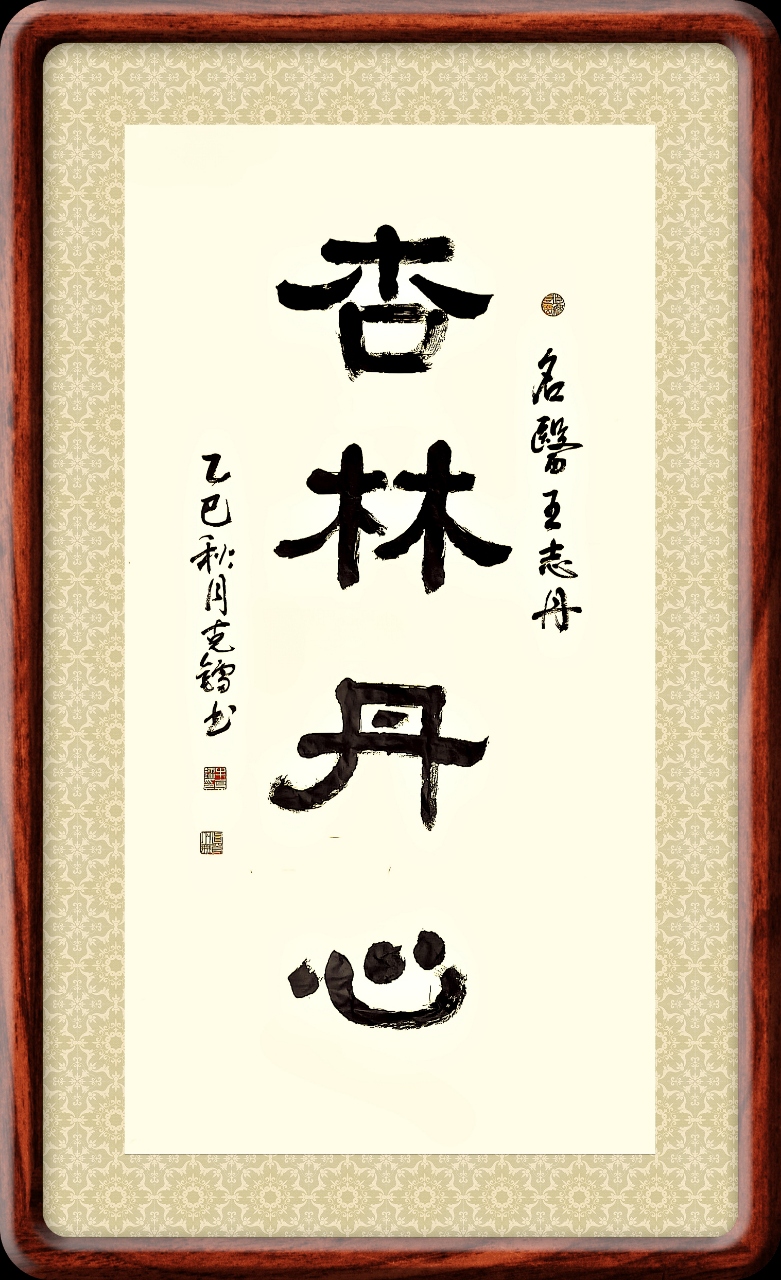 名醫王志丹
杏林丹心
乙巳秋月克鐫书